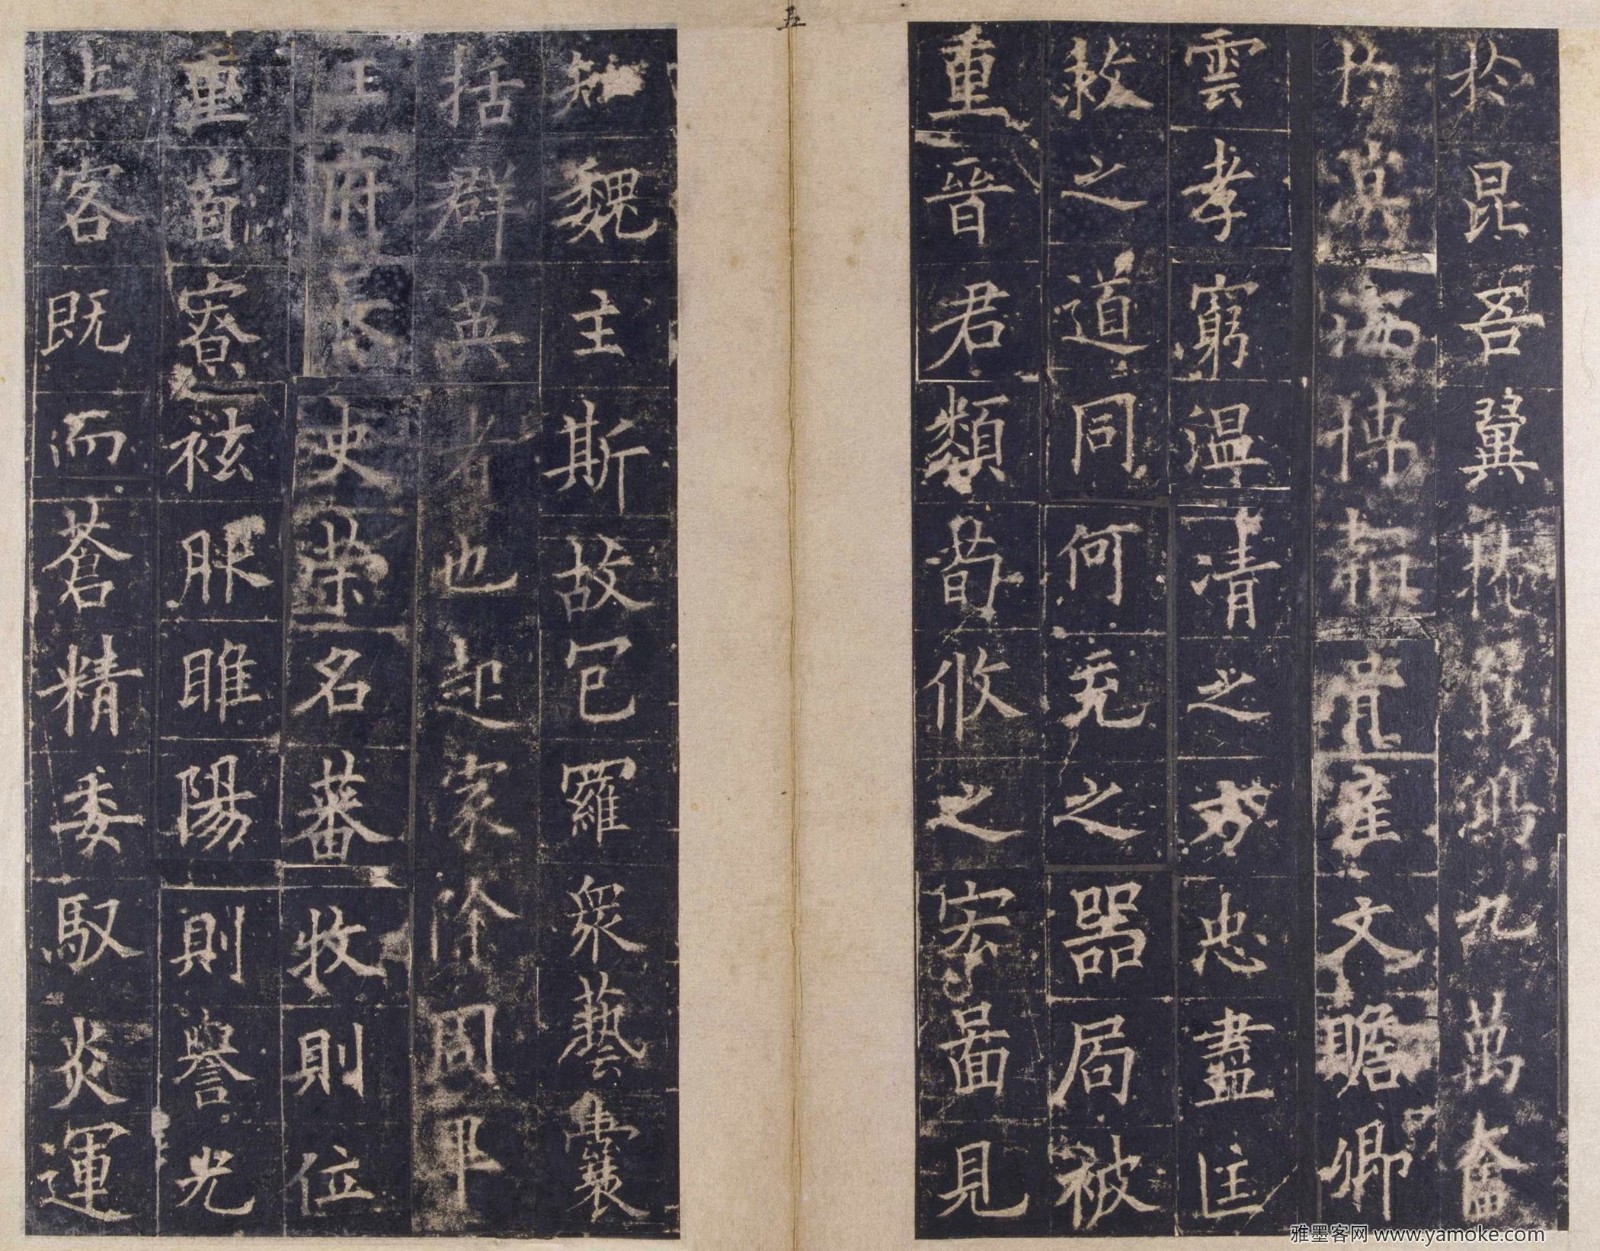 五
於昆吾翼九萬奮
海博文贍卿
雲孝窮溫清之方忠盡匡
救之道同何充之器局被
重晉君類荀攸之宏圖見
知魏主斯故包羅衆藝囊
括群英者也起家除周畢
王府長史榮名蕃牧則位
重首寮袨服睢陽則譽光
上客既而蒼精委馭炎運
雅墨客网 www.yamoke.com